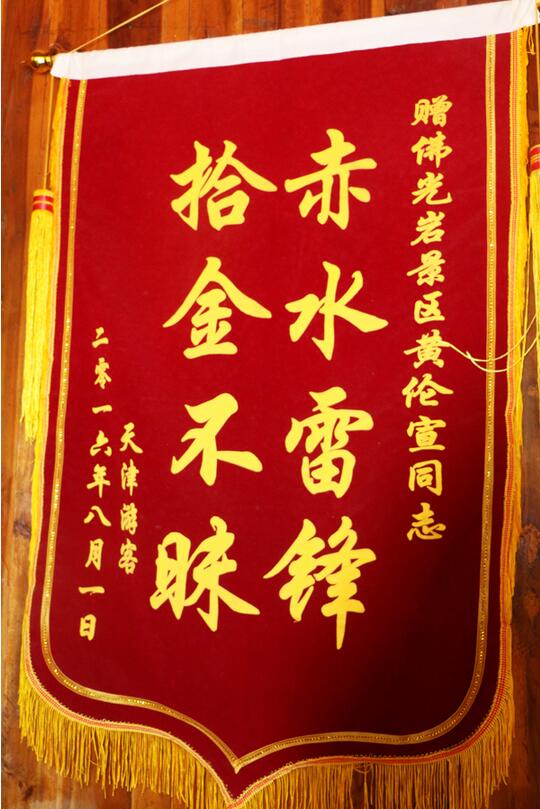 赠佛光岩景区黄伦宣同志
赤水雷锋
拾金不昧
天津游客
二零一六年八月一日